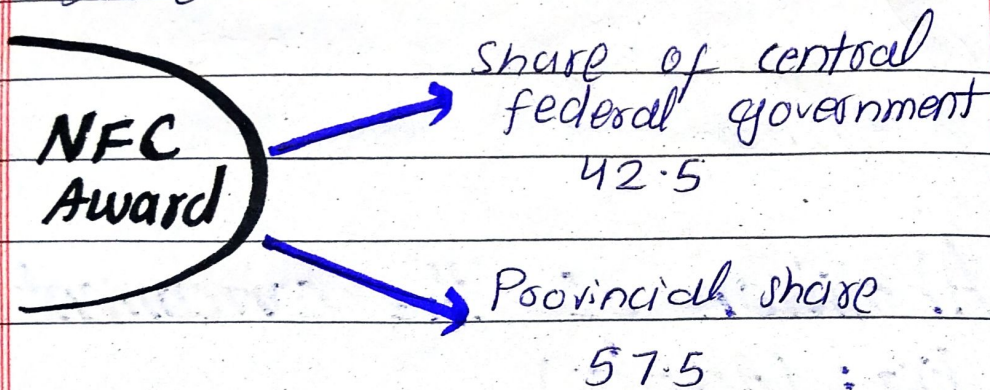 NFC
Award
Share of central
federal government
42.5
Provincial share
57.5